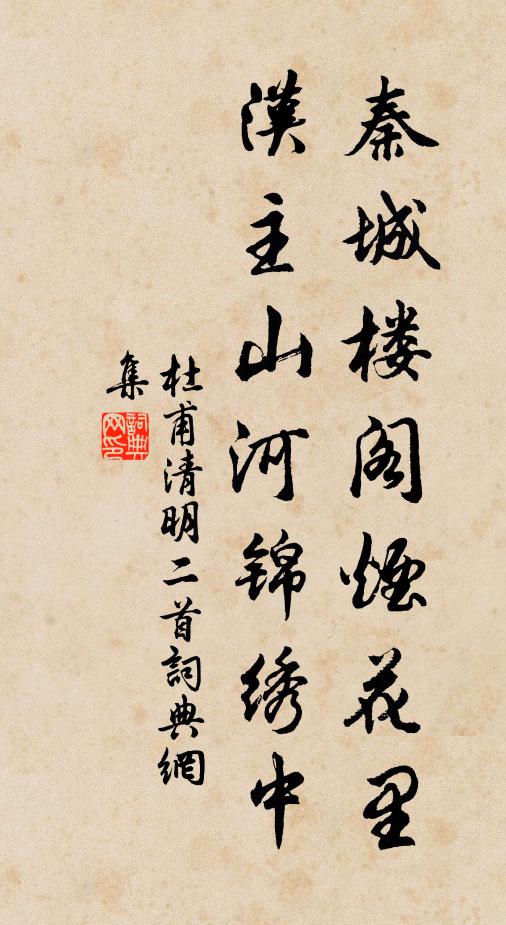 秦城楼阁煙花里
漢主山河锦绣中
杜甫清明二首詞典網
集
詞典网印